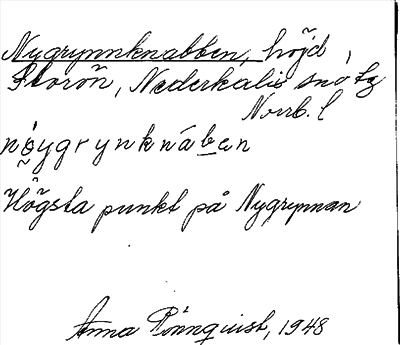 Nygrynnknabben, höjd,
Storön, Nederkalix snö tg
Norrb. l
nygrynknában
Högsta punkt på Nygrynnan
Anna Rönnquist, 1948